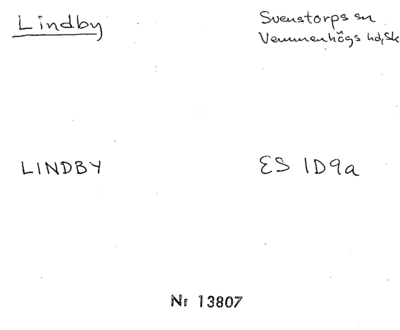 Lindby
Svenstorps sn
Vemmenhögs hd, Sk
LINDBY
ES 1D9a
Nr 13807